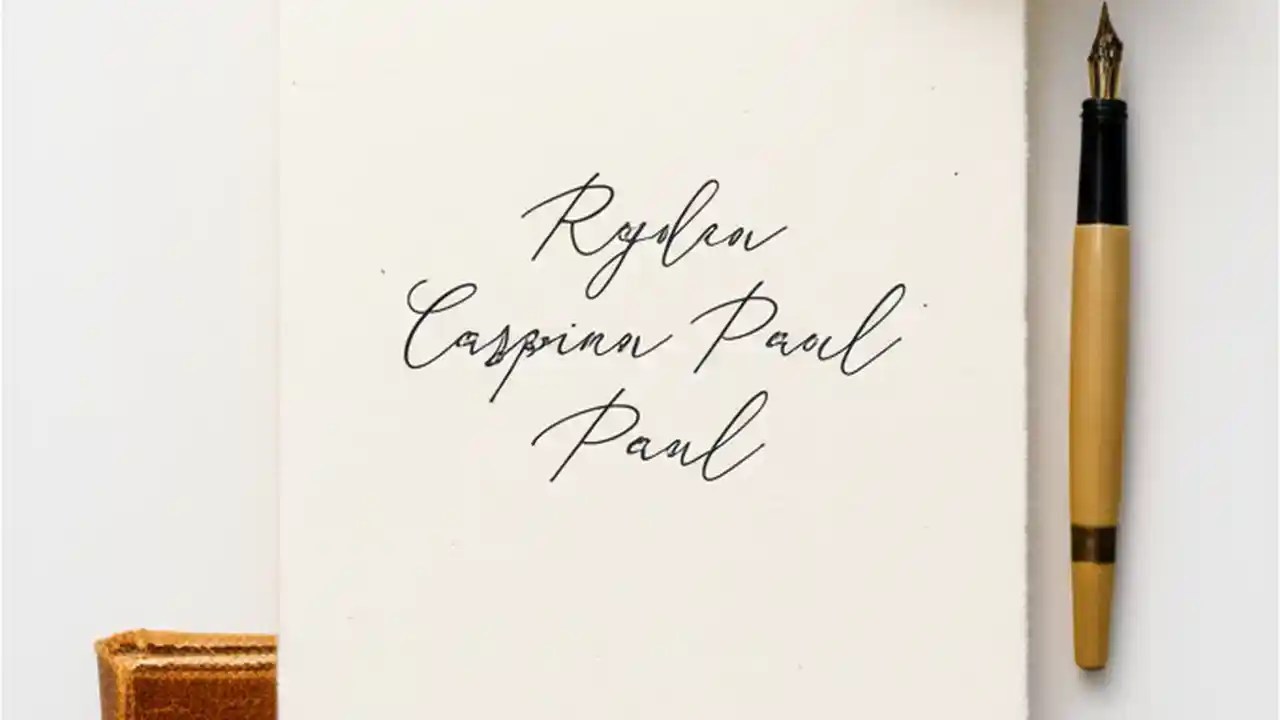 Ryden
Caspian Paul
Paul